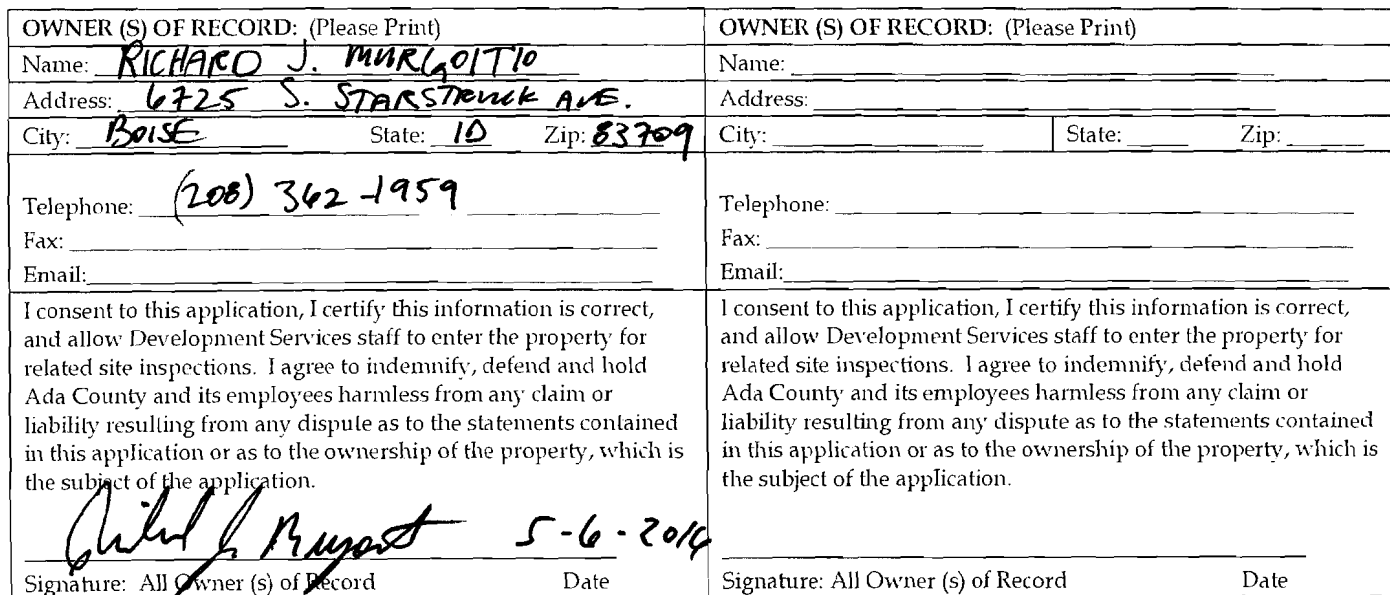 OWNER (S) OF RECORD: (Please Print)
Name: RICHARD J. MURGOITIO
Address: 6725 S. STARSTRUCK AVE.
City: BOISE State: ID Zip: 83709
Telephone: (208) 362-1959
Fax:
Email:
I consent to this application, I certify this information is correct,
and allow Development Services staff to enter the property for
related site inspections. I agree to indemnify, defend and hold
Ada County and its employees harmless from any claim or
liability resulting from any dispute as to the statements contained
in this application or as to the ownership of the property, which is
the subject of the application.
5-6-2016
Signature: All Owner (s) of Record Date
OWNER (S) OF RECORD: (Please Print)
Name:
Address:
City: State: Zip:
Telephone:
Fax:
Email:
I consent to this application, I certify this information is correct,
and allow Development Services staff to enter the property for
related site inspections. I agree to indemnify, defend and hold
Ada County and its employees harmless from any claim or
liability resulting from any dispute as to the statements contained
in this application or as to the ownership of the property, which is
the subject of the application.
Signature: All Owner (s) of Record Date